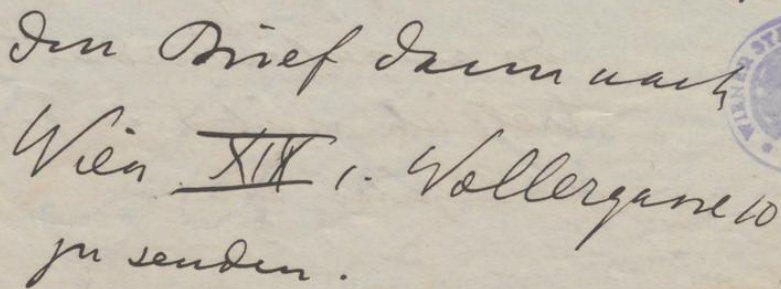 den Brief dann nach
Wien XIX, Wollergasse 10
zu senden.
WIENER ST